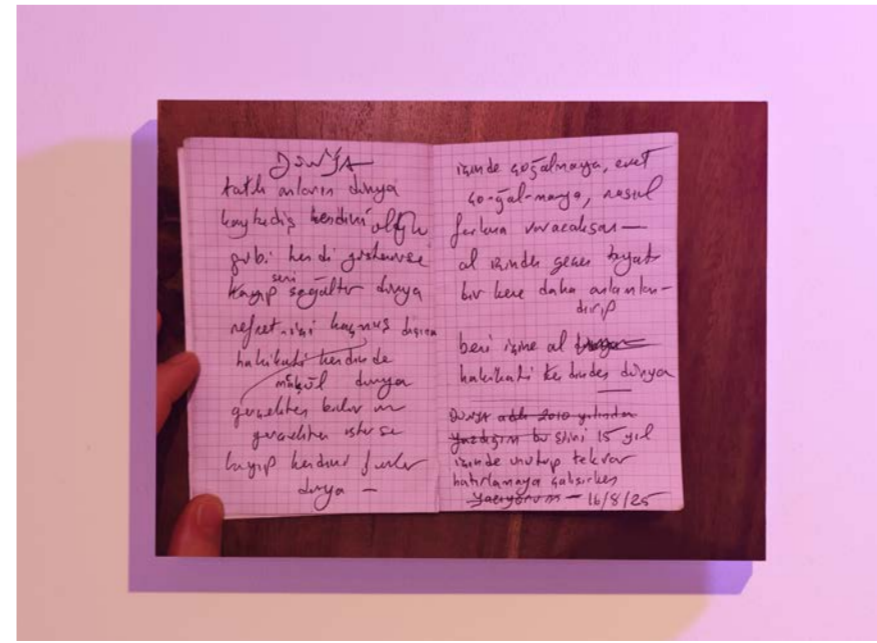 DÜNYA
tatlı anların dünya
kaybediş kendini olduğu
gibi kendi gösterirse
kayıp seni çoğaltır dünya
nefret-içi kaçmış dışına
hakikati kendinde
müşkül dünya
gerçekten
gerçekten isterse
kayıp kendini
dünya —
içinde çoğalmaya, evet
ço-ğal-maya, nasıl
farkına varacaksan —
al içinden geçen hayatı
bir kere daha anlamlan-
dırıp
beni içine al dünya
hakikati kendinden dünya
DÜNYA adlı 2010 yılında
yazdığım bu şiiri 15 yıl
içinde unutup tekrar
hatırlamaya çalışırken
yazıyorum — 16/8/25